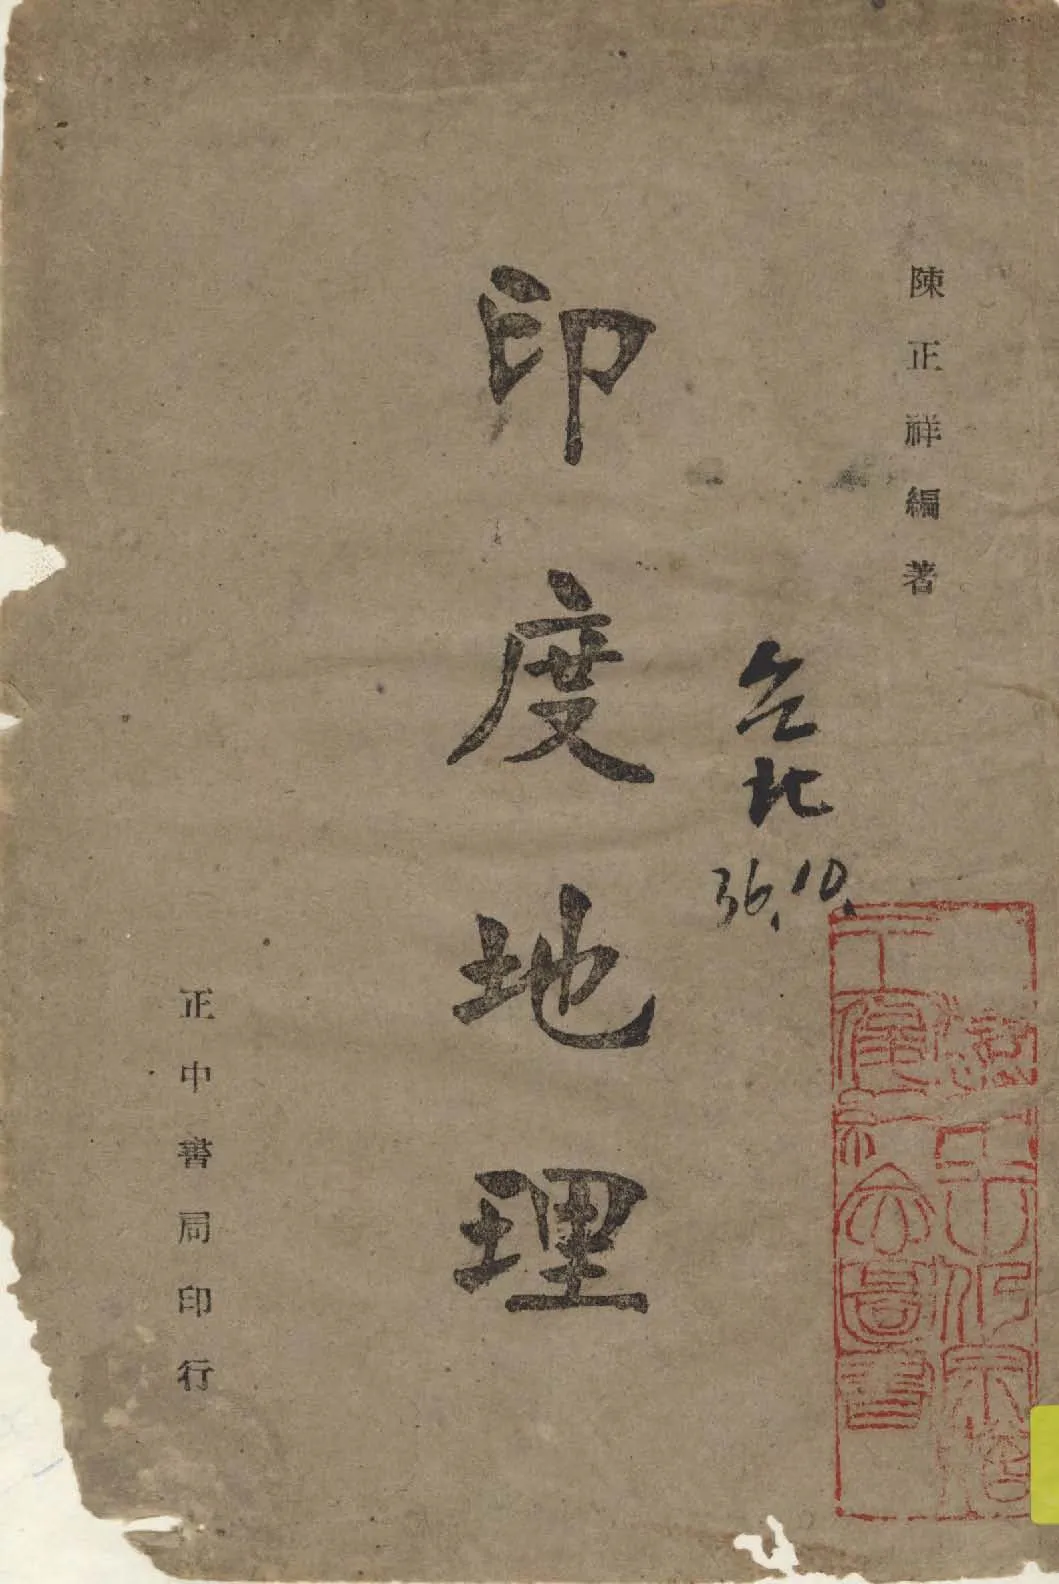 陳正祥編著
印度地理
北
36.10.
正中書局印行